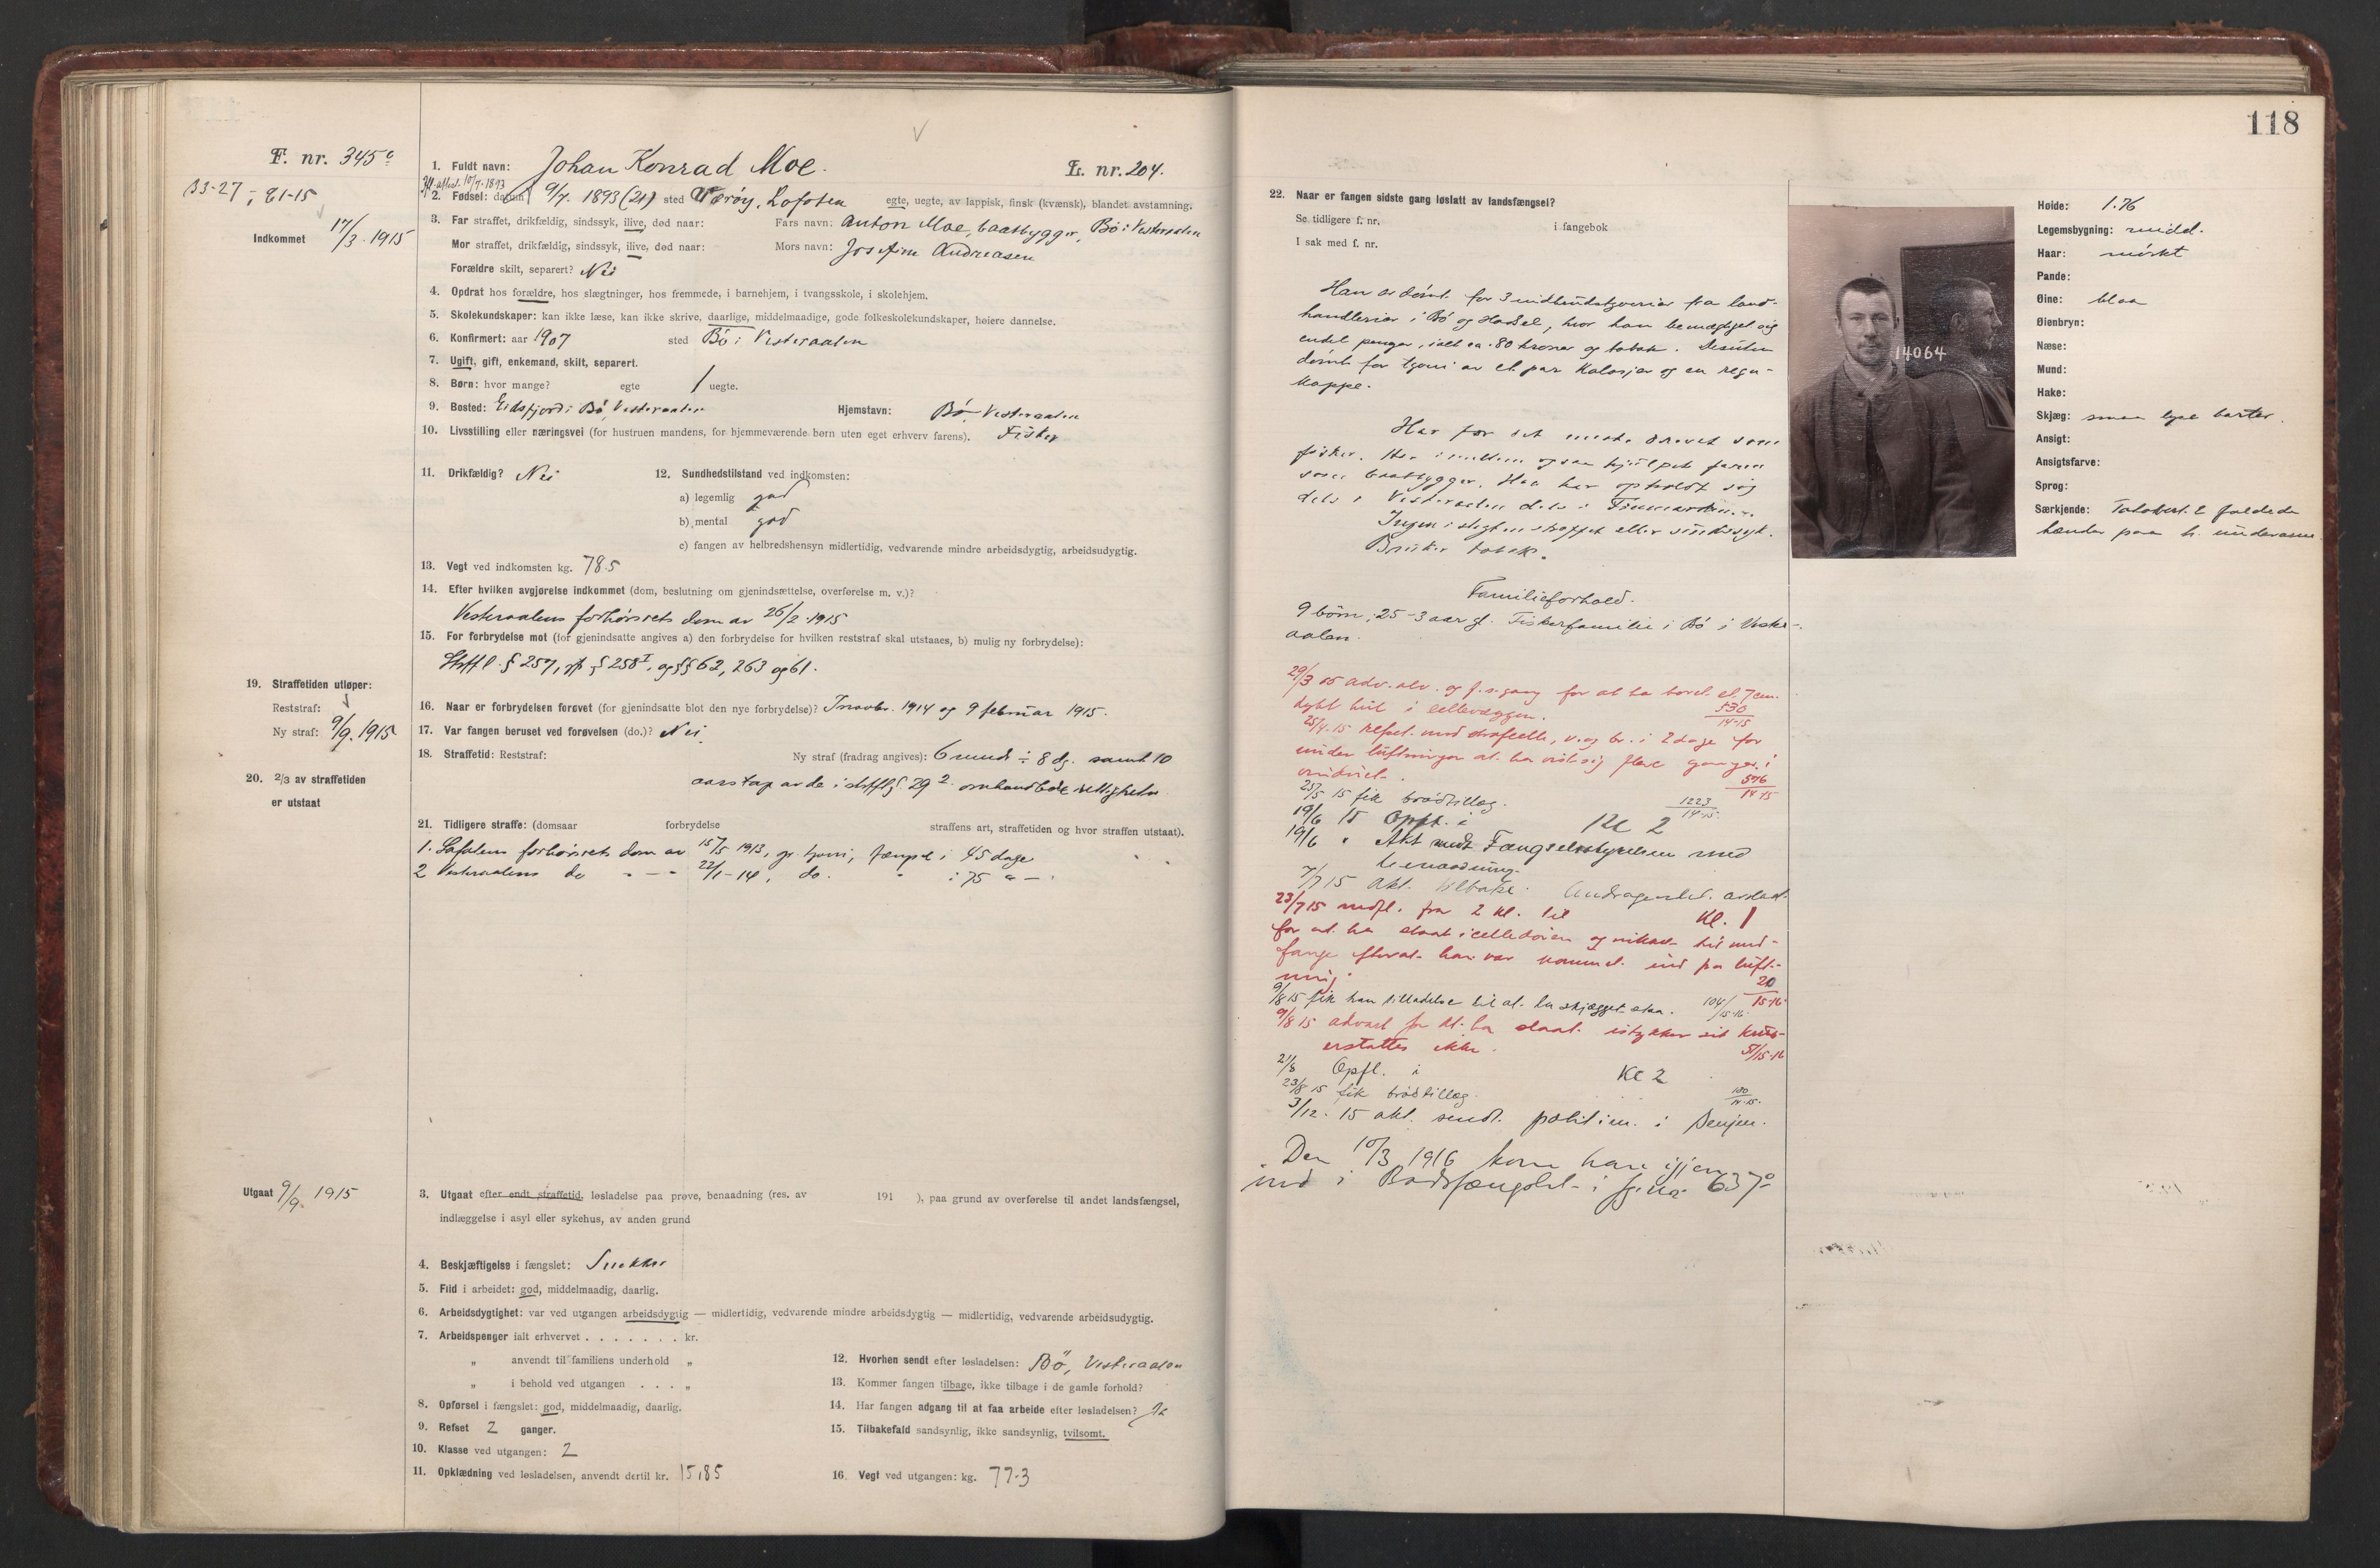 F. nr. 345º
33-27 ; 81-15
Indkommet 17/3 1915
1. Fuldt navn: Johan Konrad Moe.
L. nr. 204.
10/7 1893
2. Fødsel: datum 9/7 1893 (21) sted Værøy, Lofoten egte, uegte, av lappisk, finsk (kvænsk), blandet avstamning.
3. Far straffet, drikfældig, sindssyk, ilive, død naar: Fars navn: Anton Moe, baatbygger, Bø i Vesteraalen
Mor straffet, drikfældig, sindssyk, ilive, død naar: Mors navn: Josefine Andreasen
Forældre skilt, separert? Nei
4. Opdrat hos forældre, hos slægtninger, hos fremmede, i barnehjem, i tvangsskole, i skolehjem.
5. Skolekundskaper: kan ikke læse, kan ikke skrive, daarlige, middelmaadige, gode folkeskolekundskaper, høiere dannelse.
6. Konfirmert: aar 1907 sted Bø i Vesteraalen
7. Ugift, gift, enkemand, skilt, separert.
8. Børn: hvor mange? egte / uegte.
9. Bosted: Eidsfjord i Bø, Vesteraalen Hjemstavn: Bø, Vesteraalen
10. Livsstilling eller næringsvei (for hustruen mandens, for hjemmeværende børn uten eget erhverv farens). Fisker
11. Drikfældig? Nei 12. Sundhedstilstand ved indkomsten:
a) legemlig god
b) mental god
c) fangen av helbredshensyn midlertidig, vedvarende mindre arbeidsdygtig, arbeidsudygtig.
13. Vegt ved indkomsten kg. 78.5
14. Efter hvilken avgjørelse indkommet (dom, beslutning om gjenindsættelse, overførelse m. v.)?
Vesteraalens forhørsrets dom av 26/2 1915
15. For forbrydelse mot (for gjenindsatte angives a) den forbrydelse for hvilken reststraf skal utstaaes, b) mulig ny forbrydelse):
Strfl. § 257, jfr § 258 I, og §§ 62, 263 og 61.
19. Straffetiden utløper:
Reststraf:
Ny straf: 9/9 1915
16. Naar er forbrydelsen forøvet (for gjenindsatte blot den nye forbrydelse)? I novbr. 1914 og 9 februar 1915.
17. Var fangen beruset ved forøvelsen (do.)? Nei.
18. Straffetid: Reststraf: Ny straf (fradrag angives): 6 mndr ÷ 8 dg. samt 10
aars tap av de i strfl § 29 2 omhandlede rettigheter
20. 2/3 av straffetiden
er utstaat
21. Tidligere straffe: (domsaar forbrydelse straffens art, straffetiden og hvor straffen utstaat).
1. Lofotens forhørsrets dom av 15/5 1913, gr. tyveri, fængsel i 45 dage
2 Vesteraalens do - — - 22/1-14, do. " i 75 " — .
Utgaat 9/9 1915
3. Utgaat efter endt straffetid, løsladelse paa prøve, benaadning (res. av 191 ), paa grund av overførelse til andet landsfængsel,
indlæggelse i asyl eller sykehus, av anden grund
4. Beskjæftigelse i fængslet: Snekker
5. Flid i arbeidet: god, middelmaadig, daarlig.
6. Arbeidsdygtighet: var ved utgangen arbeidsdygtig — midlertidig, vedvarende mindre arbeidsdygtig — midlertidig, vedvarende arbeidsudygtig.
7. Arbeidspenger ialt erhvervet . . . . . . . kr.
" anvendt til familiens underhold "
" i behold ved utgangen . . . "
8. Opførsel i fængslet: god, middelmaadig, daarlig.
9. Refset 2 ganger.
10. Klasse ved utgangen: 2
11. Opklædning ved løsladelsen, anvendt dertil kr. 15,85
12. Hvorhen sendt efter løsladelsen: Bö, Vesteraalen
13. Kommer fangen tilbage, ikke tilbage i de gamle forhold?
14. Har fangen adgang til at faa arbeide efter løsladelsen? Ja
15. Tilbakefald sandsynlig, ikke sandsynlig, tvilsomt.
16. Vegt ved utgangen: kg. 77.3
118
22. Naar er fangen sidste gang løslatt av landsfængsel?
Se tidligere f. nr. i fangebok
I sak med f. nr.
Han er dömt for 3 indbrudstyverier fra land-
handlerier i Bö og Hadsel, hvor han bemægtiget sig
endel penger, ialt ca. 80 kroner og tobak. Desuten
dömt for tyveri av et par Kalosjer og en regn-
kappe.
Har for det meste drevet som
fisker. Har imellem ogsaa hjulpet faren
som baatbygger. Han har opholdt sig
dels i Vesteraalen dels i Finmarken.
Ingen i slegten straffet eller sindssyk.
Bruker tobak.
Familieforhold.
9 börn, 25-3 aar gl. Fiskerfamilie i Bö i Vester-
aalen.
29/3 15 adv. alv. og f. s. gang for at ha boret et 7 cm.
dybt hul i cellevæggen. 530/14-15
25/4 15 refset med strafcelle, v. og br. i 2 dage for
under luftningen at ha vist sig flere ganger i
vinduet. 576/14-15
25/5 15 fik brödtillæg. 1223/14-15
19/6 15 Opfl. i Kl 2
19/6 " Akt sendt Fængselsstyrelsen med
benaadning.
7/7 15 akt. tilbake. Andragendet avslaat.
23/7 15 nedfl. fra 2 kl. til Kl. 1
for at ha staat i celledøren og vinket til med-
fange efterat han var kommet ind fra luft-
ning 20/15-16
9/8 15 fik han tilladelse til at la skjægget staa. 104/15-16
9/8 15 advart for at ha slaat istykker sit krus-
erstattes ikke. 51/15-16
21/8 Opfl. i Kl 2
23/8 15 fik brödtillæg.
3/12 15 akt. sendt politim. i Senjen.
Den 10/3 1916 kom han igjen
ind i Bodsfængslet i fg. nr 637º
14064
Høide: 1.76
Legemsbygning: midd.
Haar: mörkt
Pande:
Øine: blaa
Øienbryn:
Næse:
Mund:
Hake:
Skjæg: smaa lyse barter.
Ansigt:
Ansigtsfarve:
Sprog:
Særkjende: Tatovert 2 foldede
hænder paa h. underarm